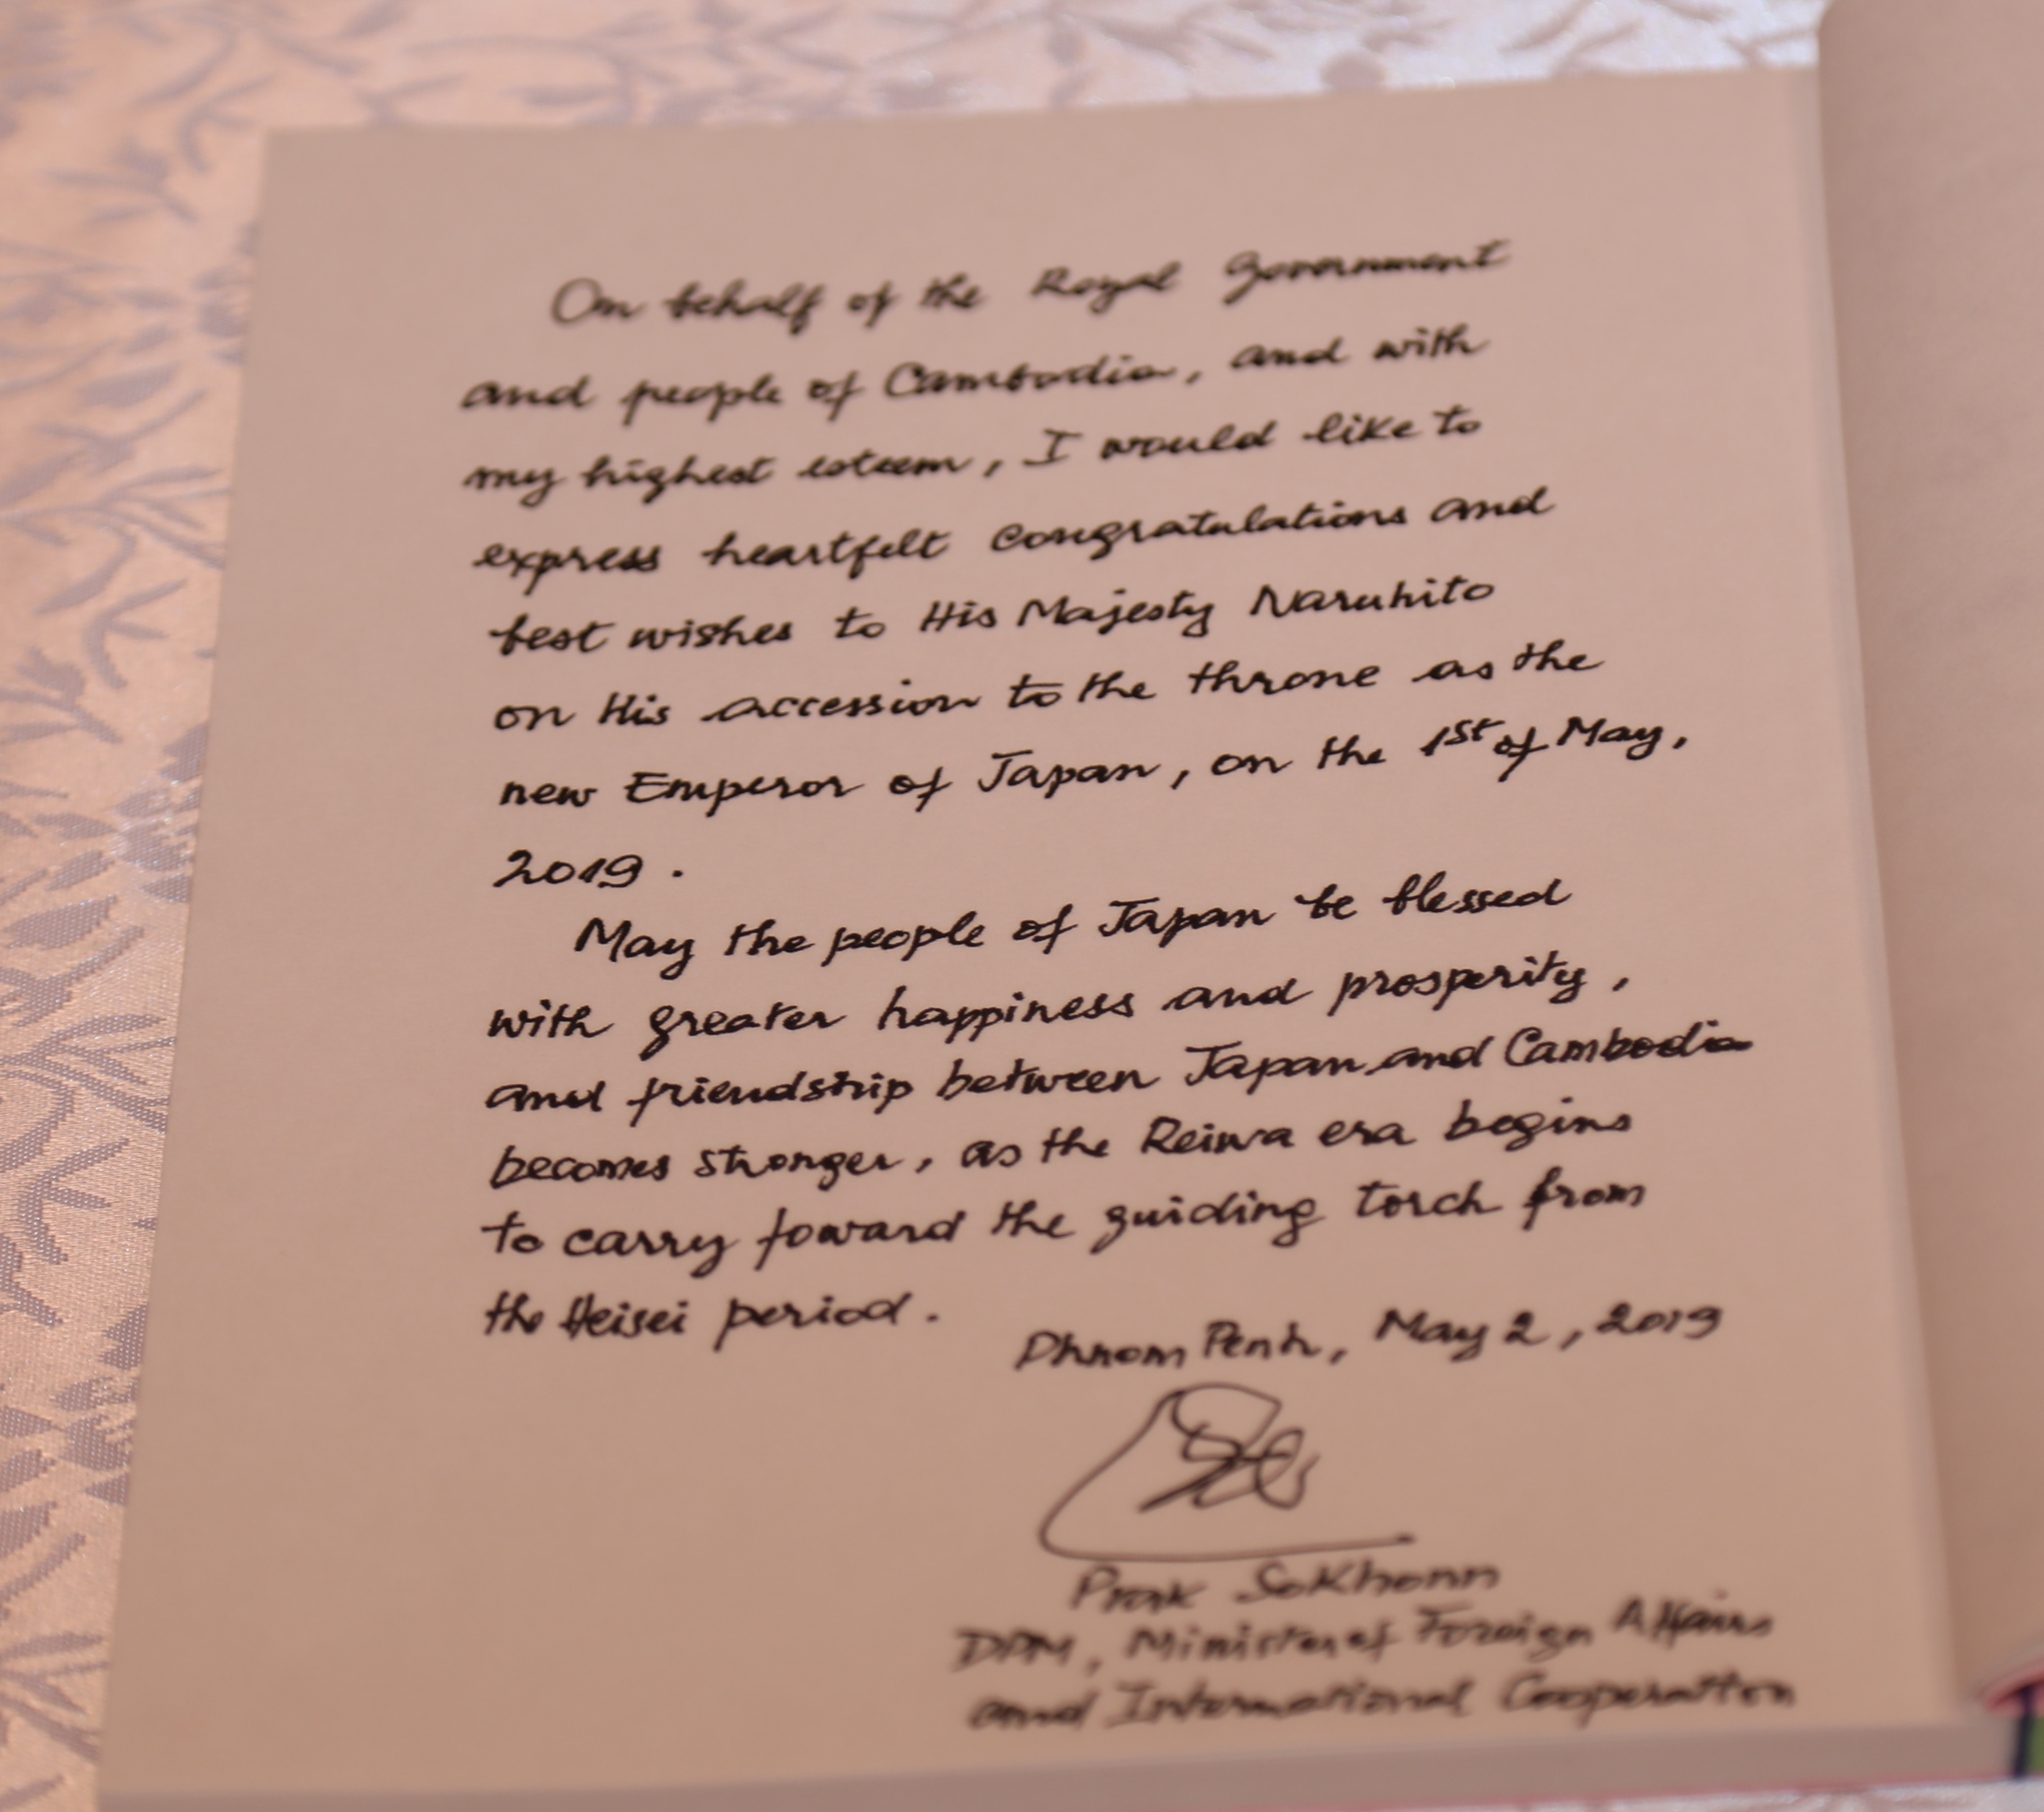 On behalf of the Royal Government
and people of Cambodia, and with
my highest esteem, I would like to
express heartfelt congratulations and
best wishes to His Majesty Naruhito
on His accession to the throne as the
new Emperor of Japan, on the 1st of May,
2019.
May the people of Japan be blessed
with greater happiness and prosperity,
and friendship between Japan and Cambodia
becomes stronger, as the Reiwa era begins
to carry foward the guiding torch from
the Heisei period.
Phnom Penh, May 2, 2019
Prak Sokhonn
DPM, Minister of Foreign Affairs
and International Cooperation